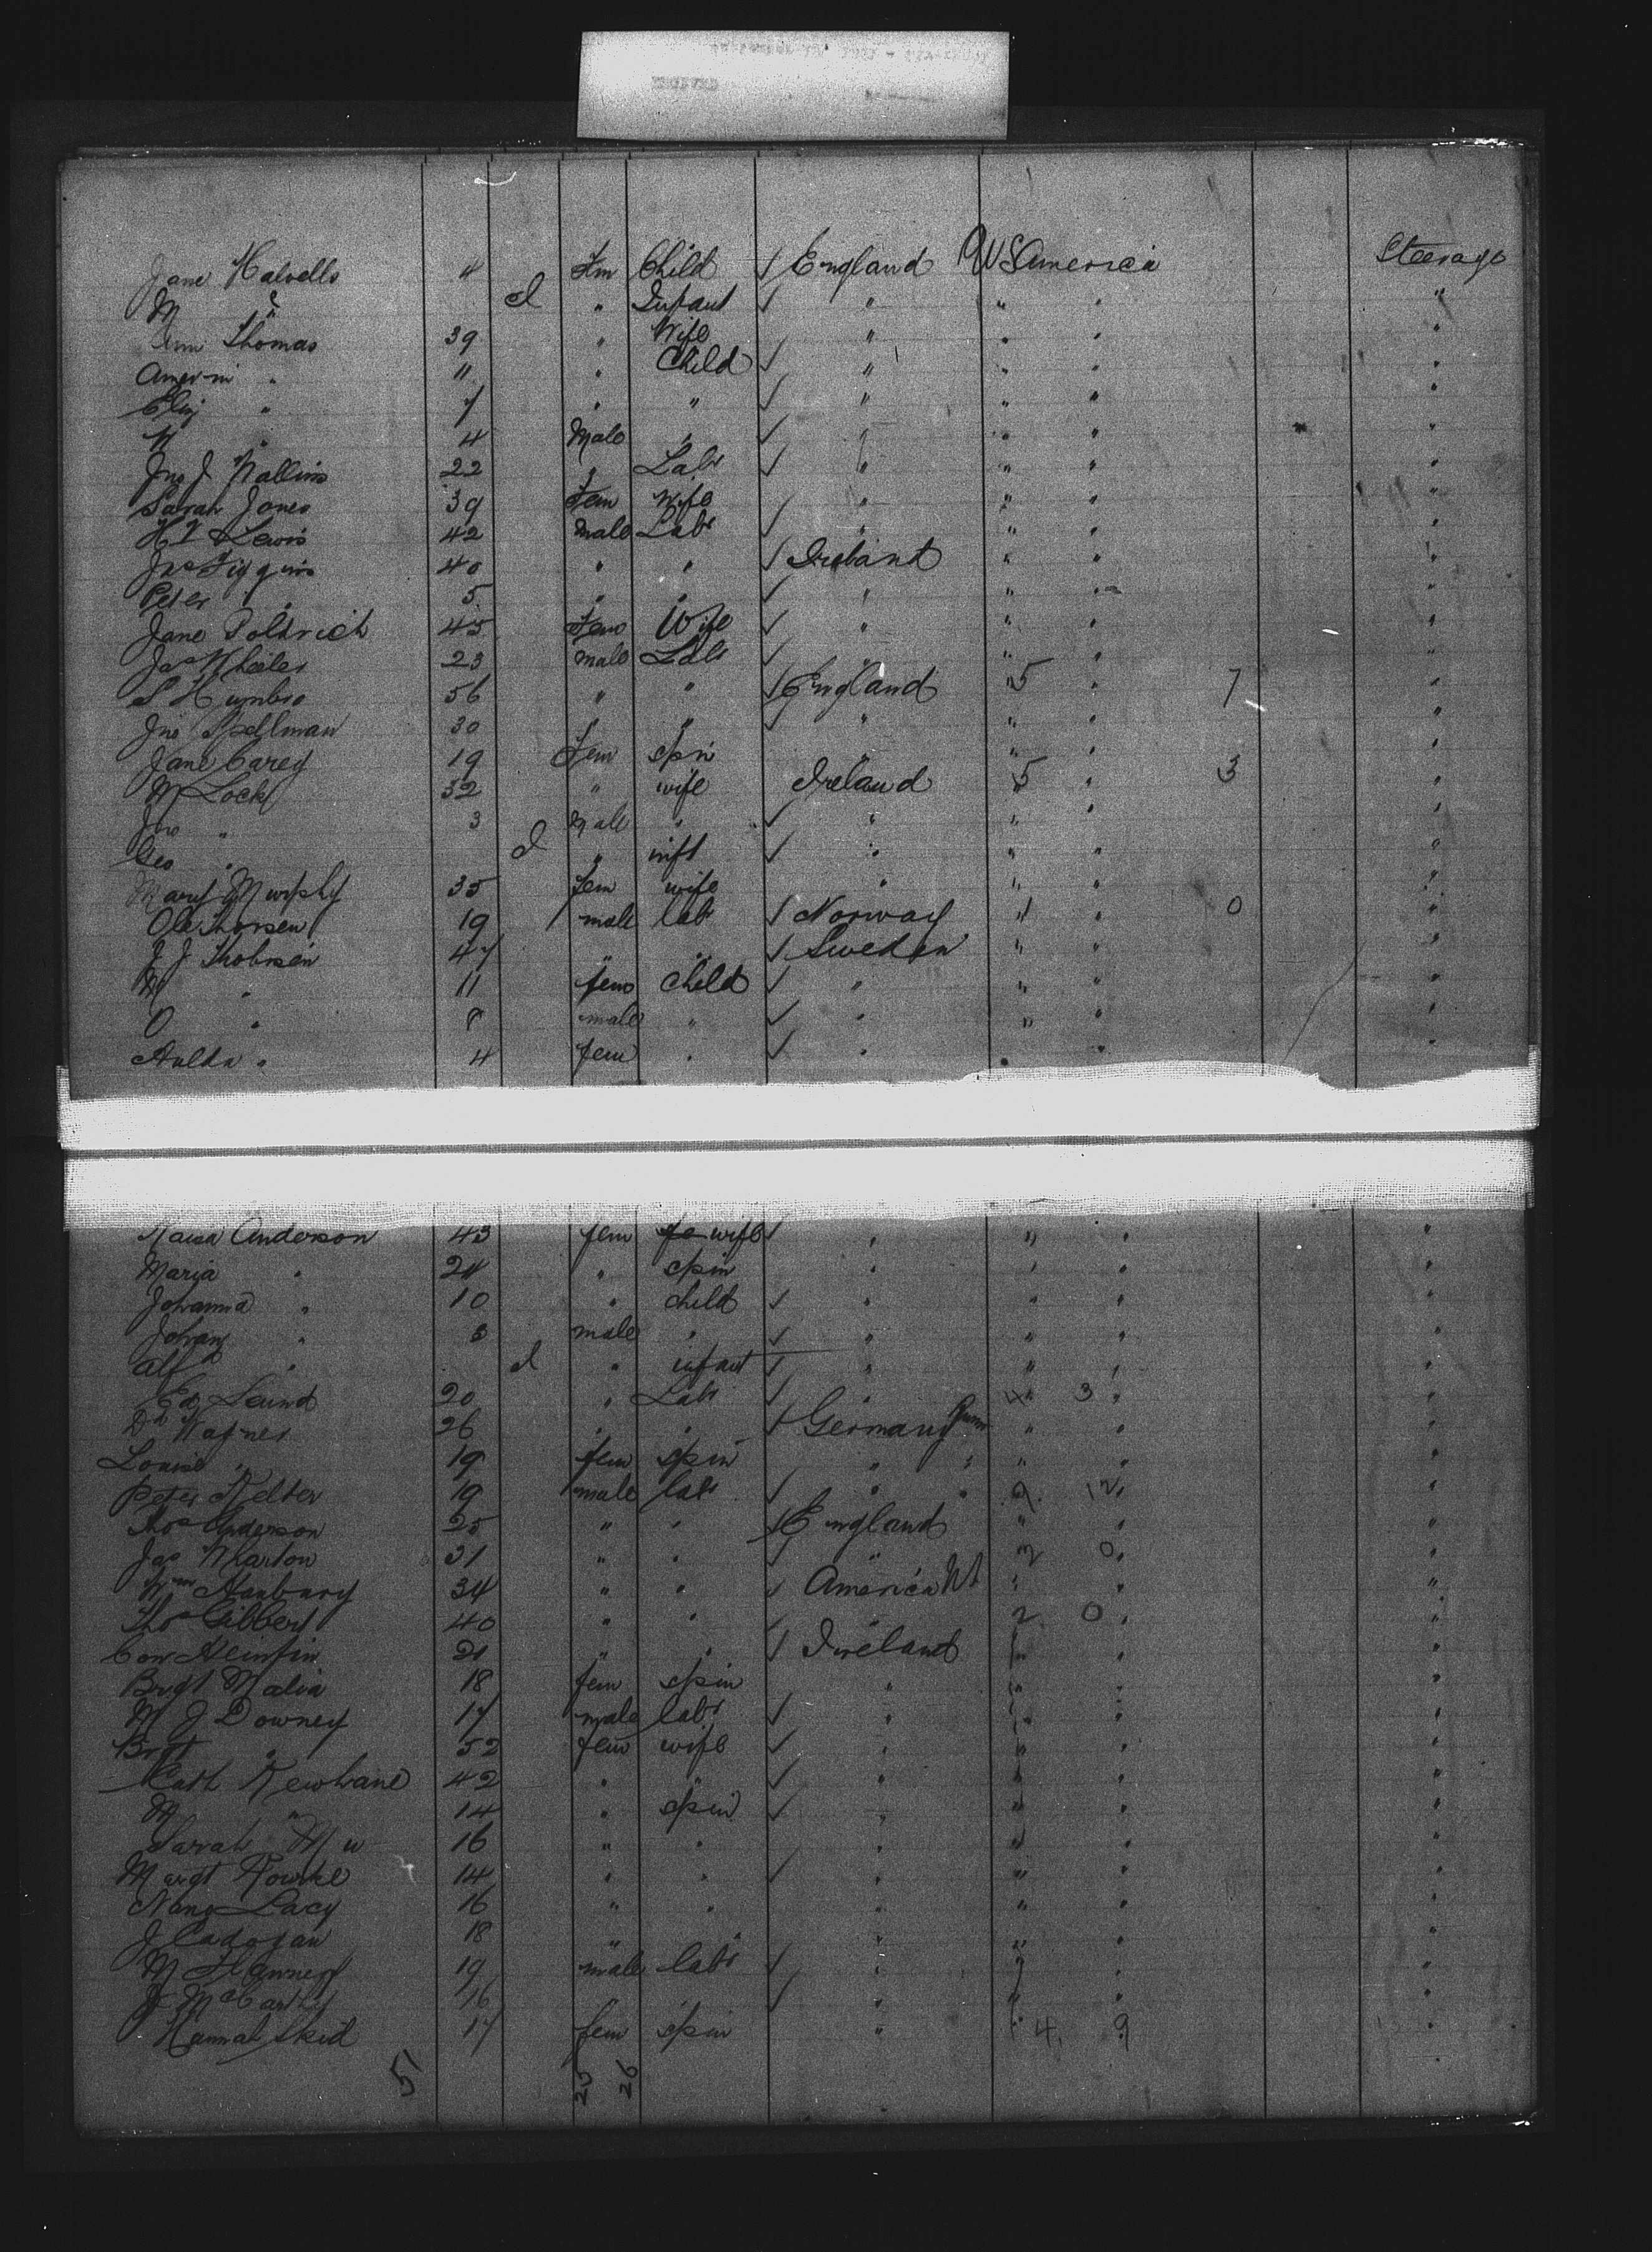 Jane Halvells 4 Fm Child ✓ England U S America Steerage
M " d " Infant ✓ " " " "
Ann Thomas 39 " Wife " " " "
" 11 " Child ✓ " " " "
Eliz " 7 " " ✓ " " " "
W " 4 Male " ✓ " " " "
Jno J Wallins 22 " Labr ✓ " " " "
Sarah Jones 39 Fem Wife " " " "
Lewis 42 male Labr ✓ " " " "
Jno Figgins 40 " " ✓ Ireland " " "
Peter " 5 " " ✓ " " " "
Jane Poldrich 45 Fem Wife ✓ " " " "
Jas Wheeler 23 male Labr ✓ " " " "
S Humbro 56 " " ✓ England " 5 " 7 "
Jno Spellman 30 " " ✓ " " " "
Jane Carey 19 Fem Spin " " "
M Lock 32 " wife Ireland 5 " 3 "
Jno " 3 Male " ✓ " " " "
Geo " d " inft ✓ " " " "
Mary Murphy 35 Fem wife " " " "
Ole Thorsen 19 male labr ✓ Norway " " 0 "
J J Thobsen 47 " " ✓ Sweden " " "
M " 11 fem child ✓ " " " "
O " 8 male " ✓ " " " "
Hulda " 4 fem " ✓ " " " "
Anderson 43 fem wife ✓ " " " "
Maria " 24 " spin " " " "
Johanna " 10 " child ✓ " " " "
Johan " 3 male " ✓ " " " "
Alfd " d " infant ✓ " " " "
Ed 20 " Labr ✓ " 4 " 3 " "
Dd Wagner 26 " " ✓ Germany " " "
Louise " 19 fem spin " " " " "
Peter Kelter 19 male labr ✓ " " 9 12 "
Thos Anderson 25 " " ✓ England " " "
Jas Wharton 31 " " ✓ " 2 0 "
Wm Hanbury 34 " " ✓ America " " "
Thos Gibbert 40 " " " 2 0 "
Con 21 " " ✓ Ireland " " "
Brgt Malia 18 fem spin " " " "
M J Downey 17 male labr ✓ " " " "
Brgt " 52 fem wife ✓ " " " "
Cath Kewhane 42 " " ✓ " " " "
M " 14 " spin ✓ " " " "
Sarah 16 " " " " " "
Margt Rourke 14 " " ✓ " " " "
Nano Lacy 16 " " " " " "
J Cadogan 18 " " " " " "
M 19 male labr ✓ " " " "
J McCarthy 16 " " ✓ " " " "
Hannah Skid 17 fem spin " " 4 9 "
51 25 26